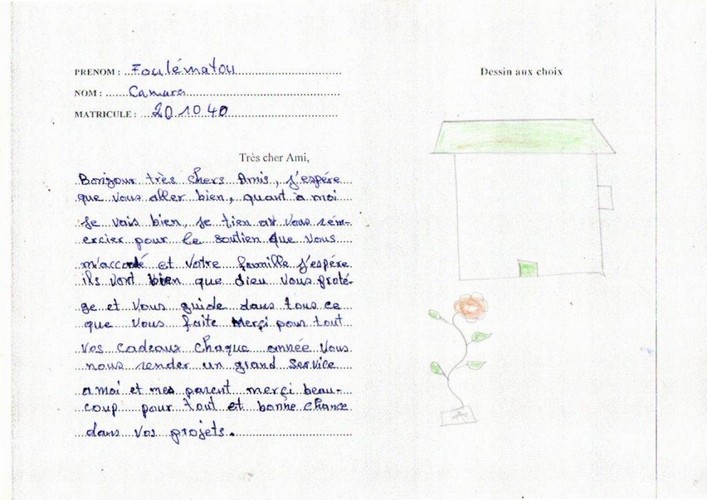 PRENOM : Foulématou
NOM : Camara
MATRICULE : 201040
Dessin aux choix
Très cher Ami,
Bonjour très chers Amis, j'espére
que vous aller bien, quant à moi
je vais bien, je tien a vous rém-
ercier pour le soutien que vous
m'accordé et votre famille j'espére
ils vont bien que dieu vous proté-
ge et vous guide dans tous ce
que vous faite Merçi pour tout
vos cadeaux chaque année vous
nous render un grand service
a moi et mes parent merçi beau-
coup pour tout et bonne chance
dans vos projets.